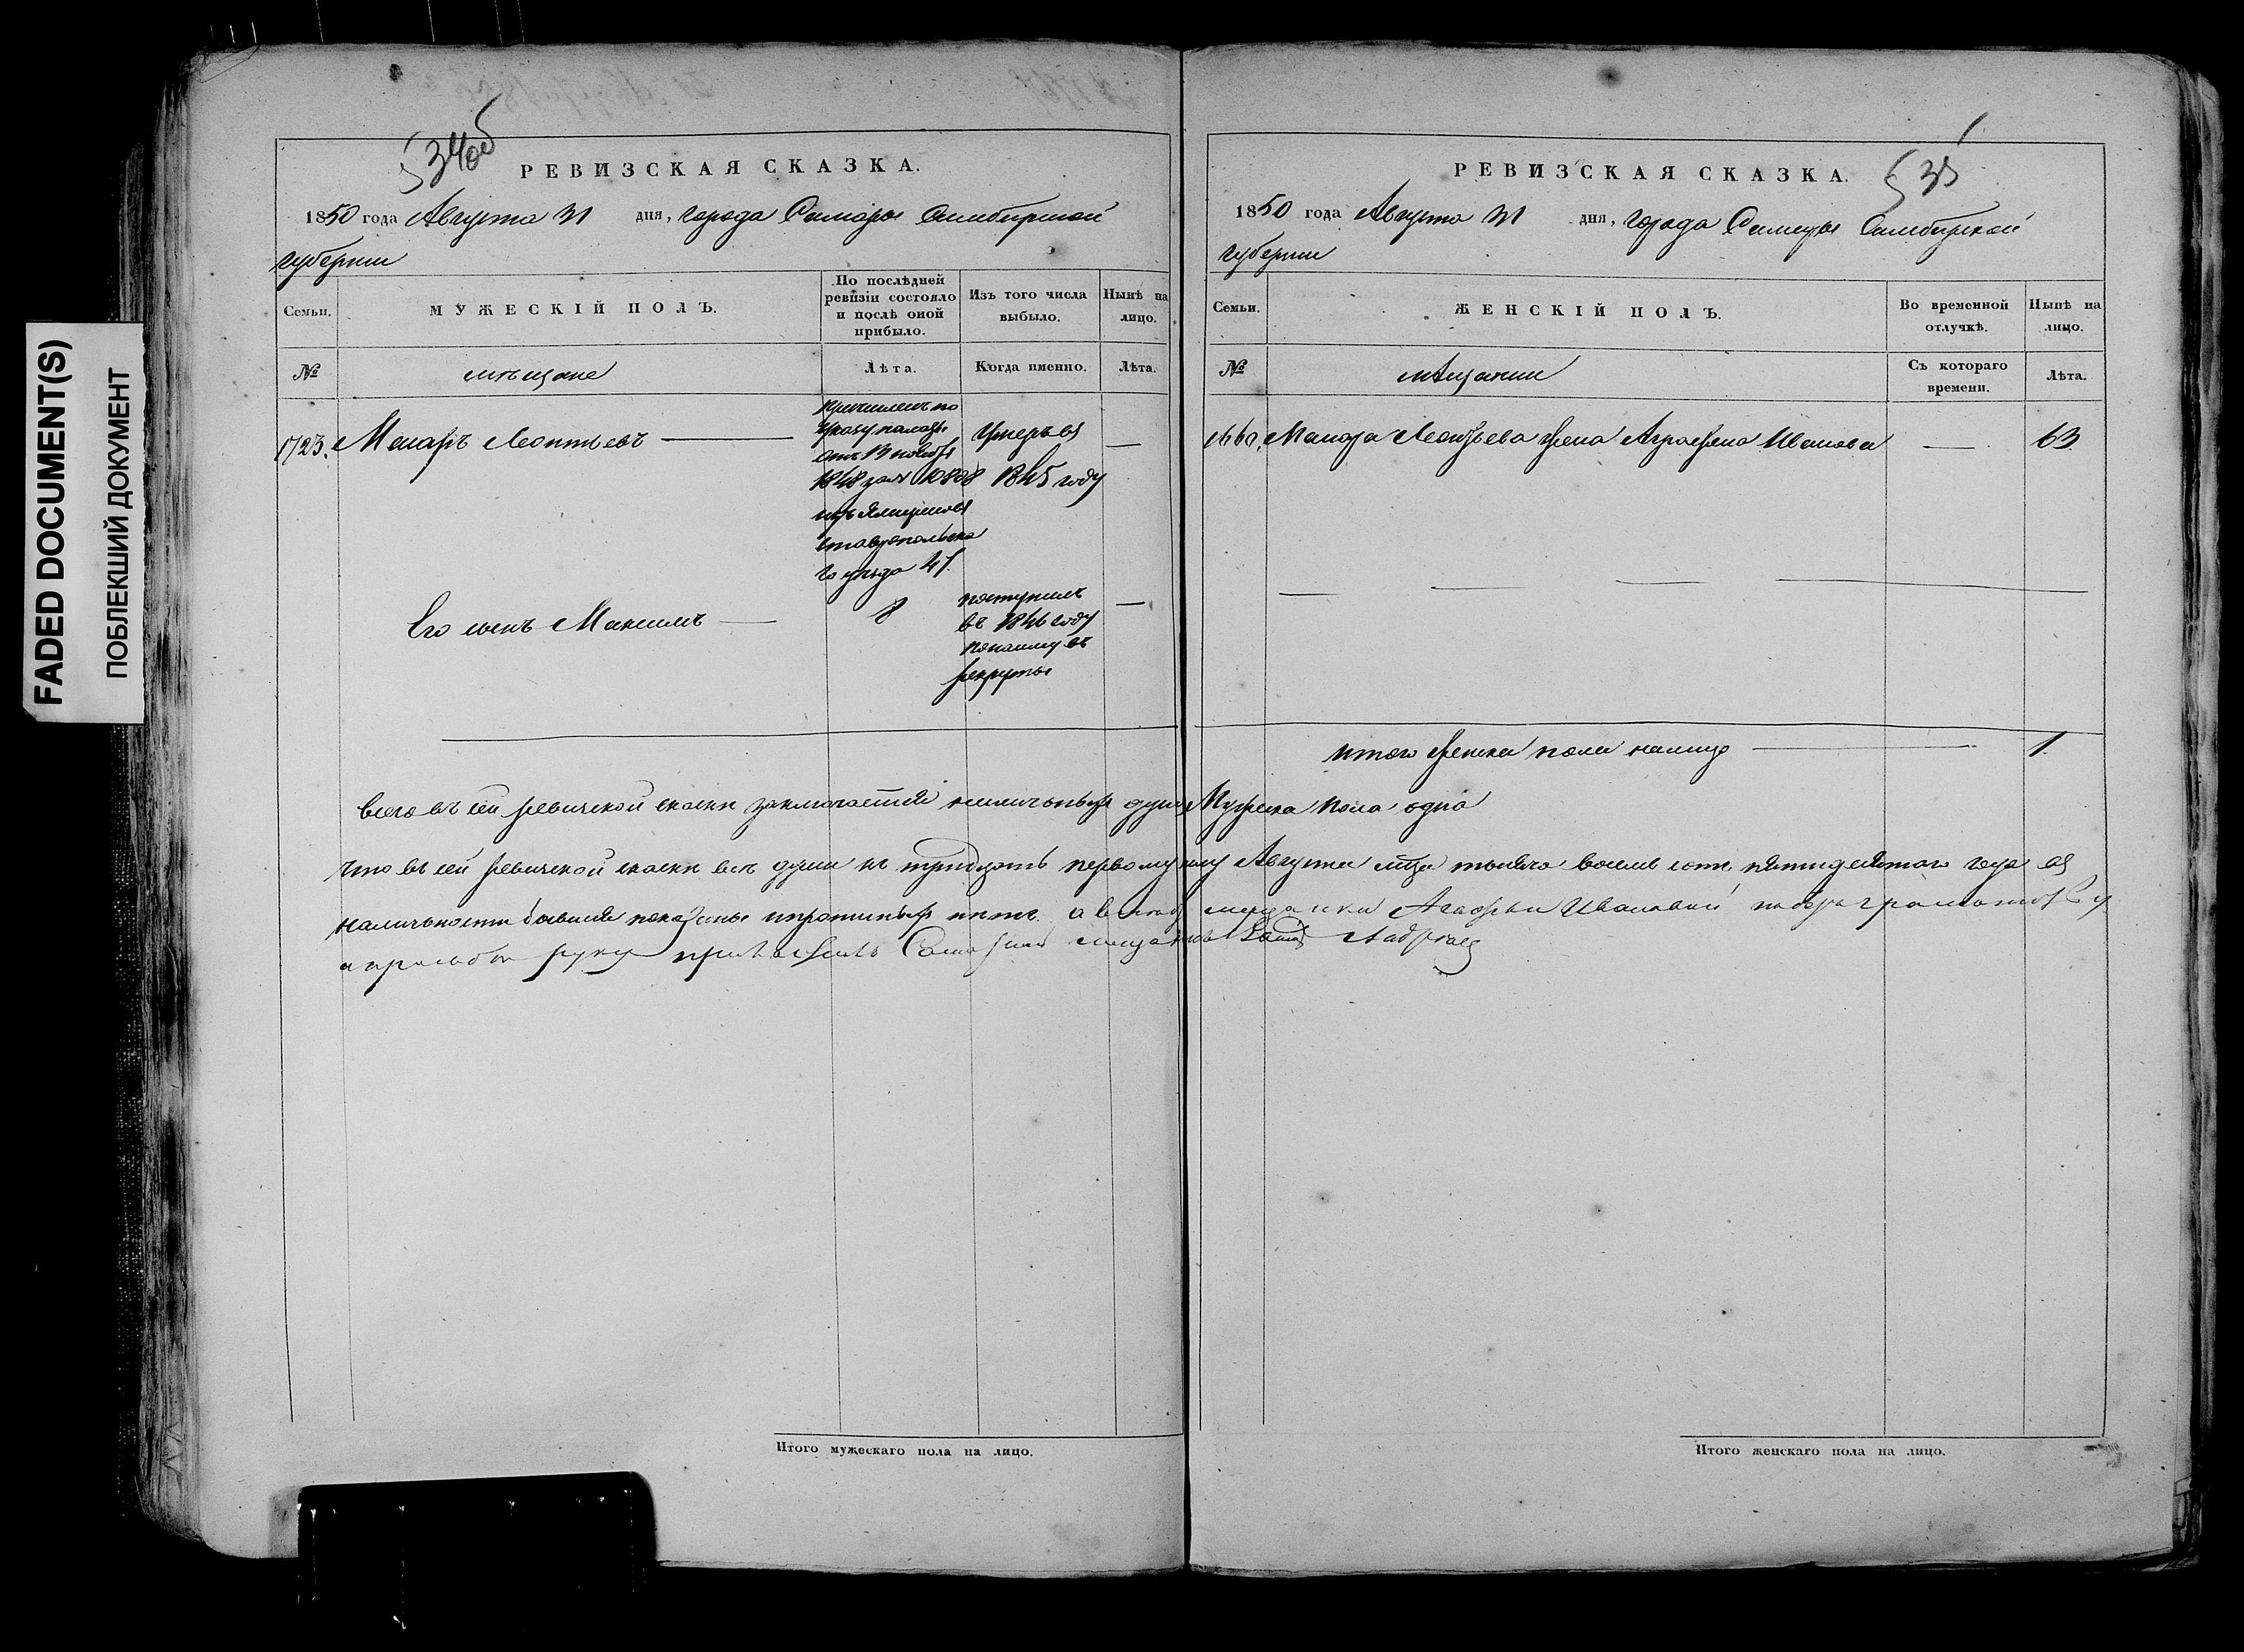 FADED DOCUMENT(S)
ПОБЛЕКШИЙ ДОКУМЕНТ
534об
РЕВИЗСКАЯ СКАЗКА.
1850 года Августа 31 дня, города Самары Симбирской
губернии
Семьи.
МУЖЕСКІЙ ПОЛЪ.
По послѣдней ревизіи состояло и послѣ оной прибыло.
Изъ того числа выбыло.
Нынѣ на лицо.
№
мѣщане
Лѣта.
Когда именно.
Лѣта.
1723. Макаръ Леонтьевъ
причисленъ по
указу палаты
отъ 13
1848 за № 10808
изъ
ставропольска
го уезда 41.
Умеръ въ
1845 году
Его сынъ Максимъ
8
поступилъ
въ 1846 году
по найму въ
рекруты
Всего въ сей ревизской скаски заключается наличныхъ душъ Мужеска пола одна
Что въ сей ревизской скаски все души къ тридцать первому числу Августа мца тысяча восемь сотъ пятидесятаго года въ
наличности бывшия показаны и протипныхъ нетъ. а вместо мещанки Агафьи Ивановой
и прозьбы руку приложилъ Самарский мещанинъ
Итого мужескаго пола на лицо.
535
РЕВИЗСКАЯ СКАЗКА.
1850 года Августа 31 дня, города Самары Симбирской
губернии
Семьи.
ЖЕНСКІЙ ПОЛЪ.
Во временной отлучкѣ.
Нынѣ на лицо.
№
мещанки
Съ котораго времени.
Лѣта.
Макара Леонтьева жена Аграфена Иванова
63.
итого женска пола налицо
1.
Итого женскаго пола на лицо.